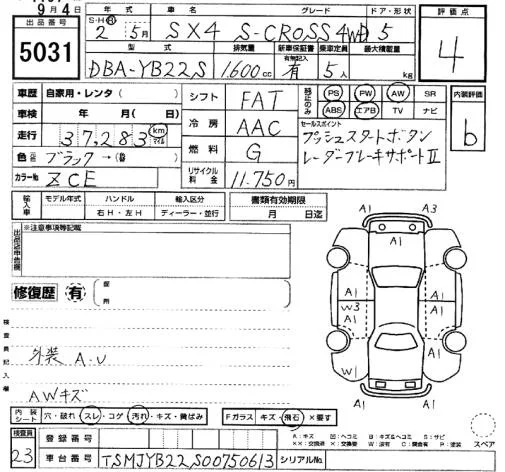 9月4日
出品番号
5031
年式 車名 グレード ドア・形状
S・H・R 2 5月 SX4 S-CROSS 4WD 5
型式 排気量 新車保証書 有無記入 乗車定員 最大積載量
DBA-YB22S 1,600cc 有 5人 kg
評価点
4
車歴 自家用・レンタ( )
車検 年 月( 日)
走行 37,283 km マイル
色 ブラック→(替)
カラーNo ZCE
シフト FAT
冷房 AAC
燃料 G
リサイクル料金 11.750円
PS PW AW SR
ABS エアB TV ナビ
セールスポイント
プッシュスタートボタン
レーダーブレーキサポートⅡ
内装評価
b
輸入車 モデル年式 ハンドル 輸入区分 書類有効期限
右H・左H ディーラー・並行 月 日迄
出品店申告欄
※注意事項等記載
修復歴 有 箇所
検査員記入欄
外装 A.U
AWキズ
A1 A3
A1
A1 A1
W3
A1 A1
W1
A1 A1
内装シート 穴・破れ スレ・コゲ 汚れ・キズ・黄ばみ
Fガラス キズ・飛石 ×要す
検査員
23
登録番号
車台番号 TSMJYB22S00750613 シリアルNo.
スペア